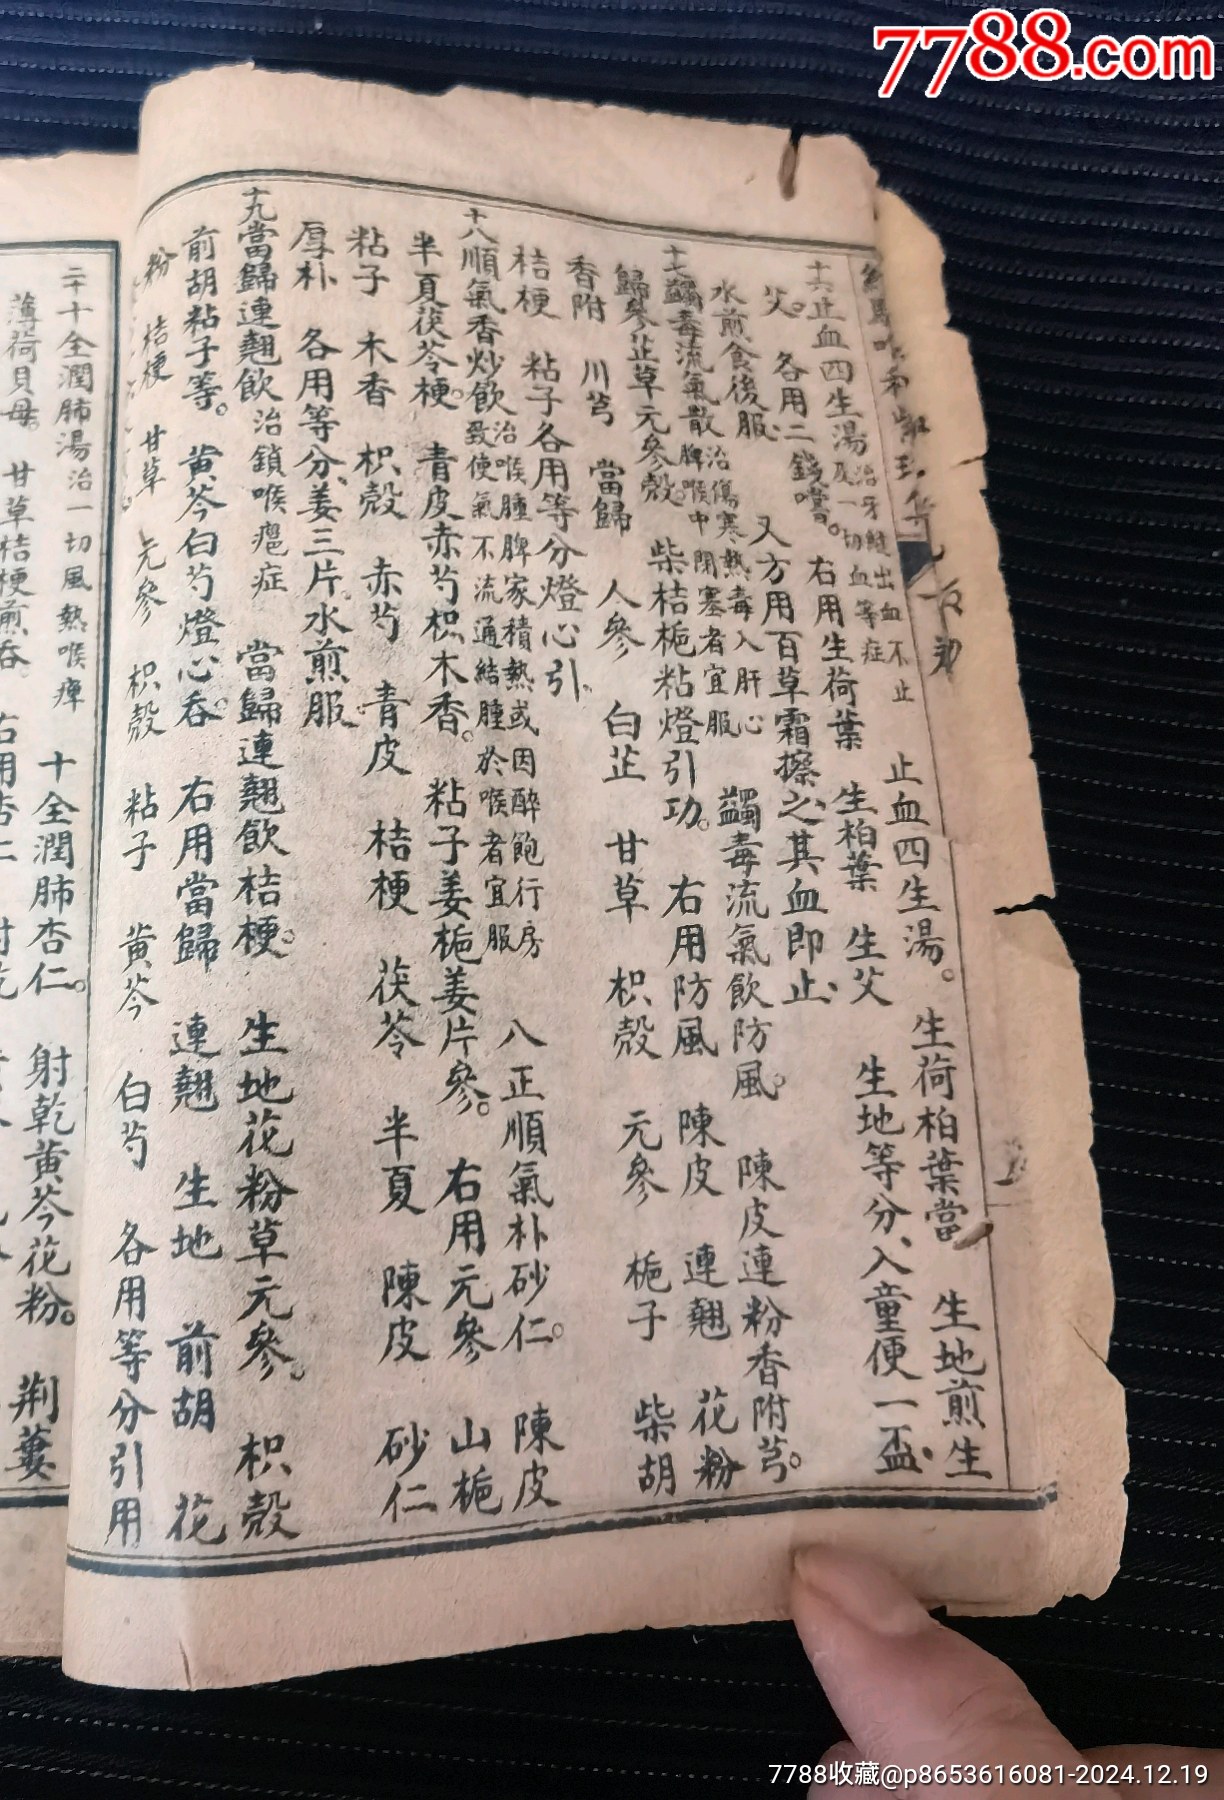 7788.com
十六止血四生湯 治牙縫出血不止及一切血等症 止血四生湯。 生荷柏葉當 生地煎生
艾。 各用二錢嚐。 右用生荷葉 生柏葉 生艾 生地等分、入童便一盃、
水煎食後服、 又方用百草霜擦之、其血即止、
十七蠲毒流氣散 治傷寒熱毒入肝心脾喉中閉塞者宜服 蠲毒流氣飲防風。 陳皮連粉香附芎。
歸參芷草元參殼。 柴桔梔粘燈引功。 右用防風 陳皮 連翹 花粉
香附 川芎 當歸 人參 白芷 甘草 枳殼 元參 梔子 柴胡
桔梗 粘子各用等分燈心引、
十八順氣香炒飲 治喉腫脾家積熱或因醉飽行房致使氣不流通結腫於喉者宜服 八正順氣朴砂仁。 陳皮
半夏茯苓梗。 青皮赤芍枳木香。 粘子姜梔姜片參。 右用元參 山梔
粘子 木香 枳殼 赤芍 青皮 桔梗 茯苓 半夏 陳皮 砂仁
厚朴 各用等分、姜三片水煎服
十九當歸連翹飲 治鎖喉瘡症 當歸連翹飲桔梗。 生地花粉草元參。 枳殼
前胡粘子等。 黃芩白芍燈心吞。 右用當歸 連翹 生地 前胡 花
粉 桔梗 甘草 元參 枳殼 粘子 黃芩 白芍 各用等分引用
二十十全潤肺湯治一切風熱喉痺 十全潤肺杏仁。 射乾黃芩花粉。 荆蔞
薄荷貝母。 甘草桔梗煎吞。 右用杏仁
7788收藏@p8653616081-2024.12.19